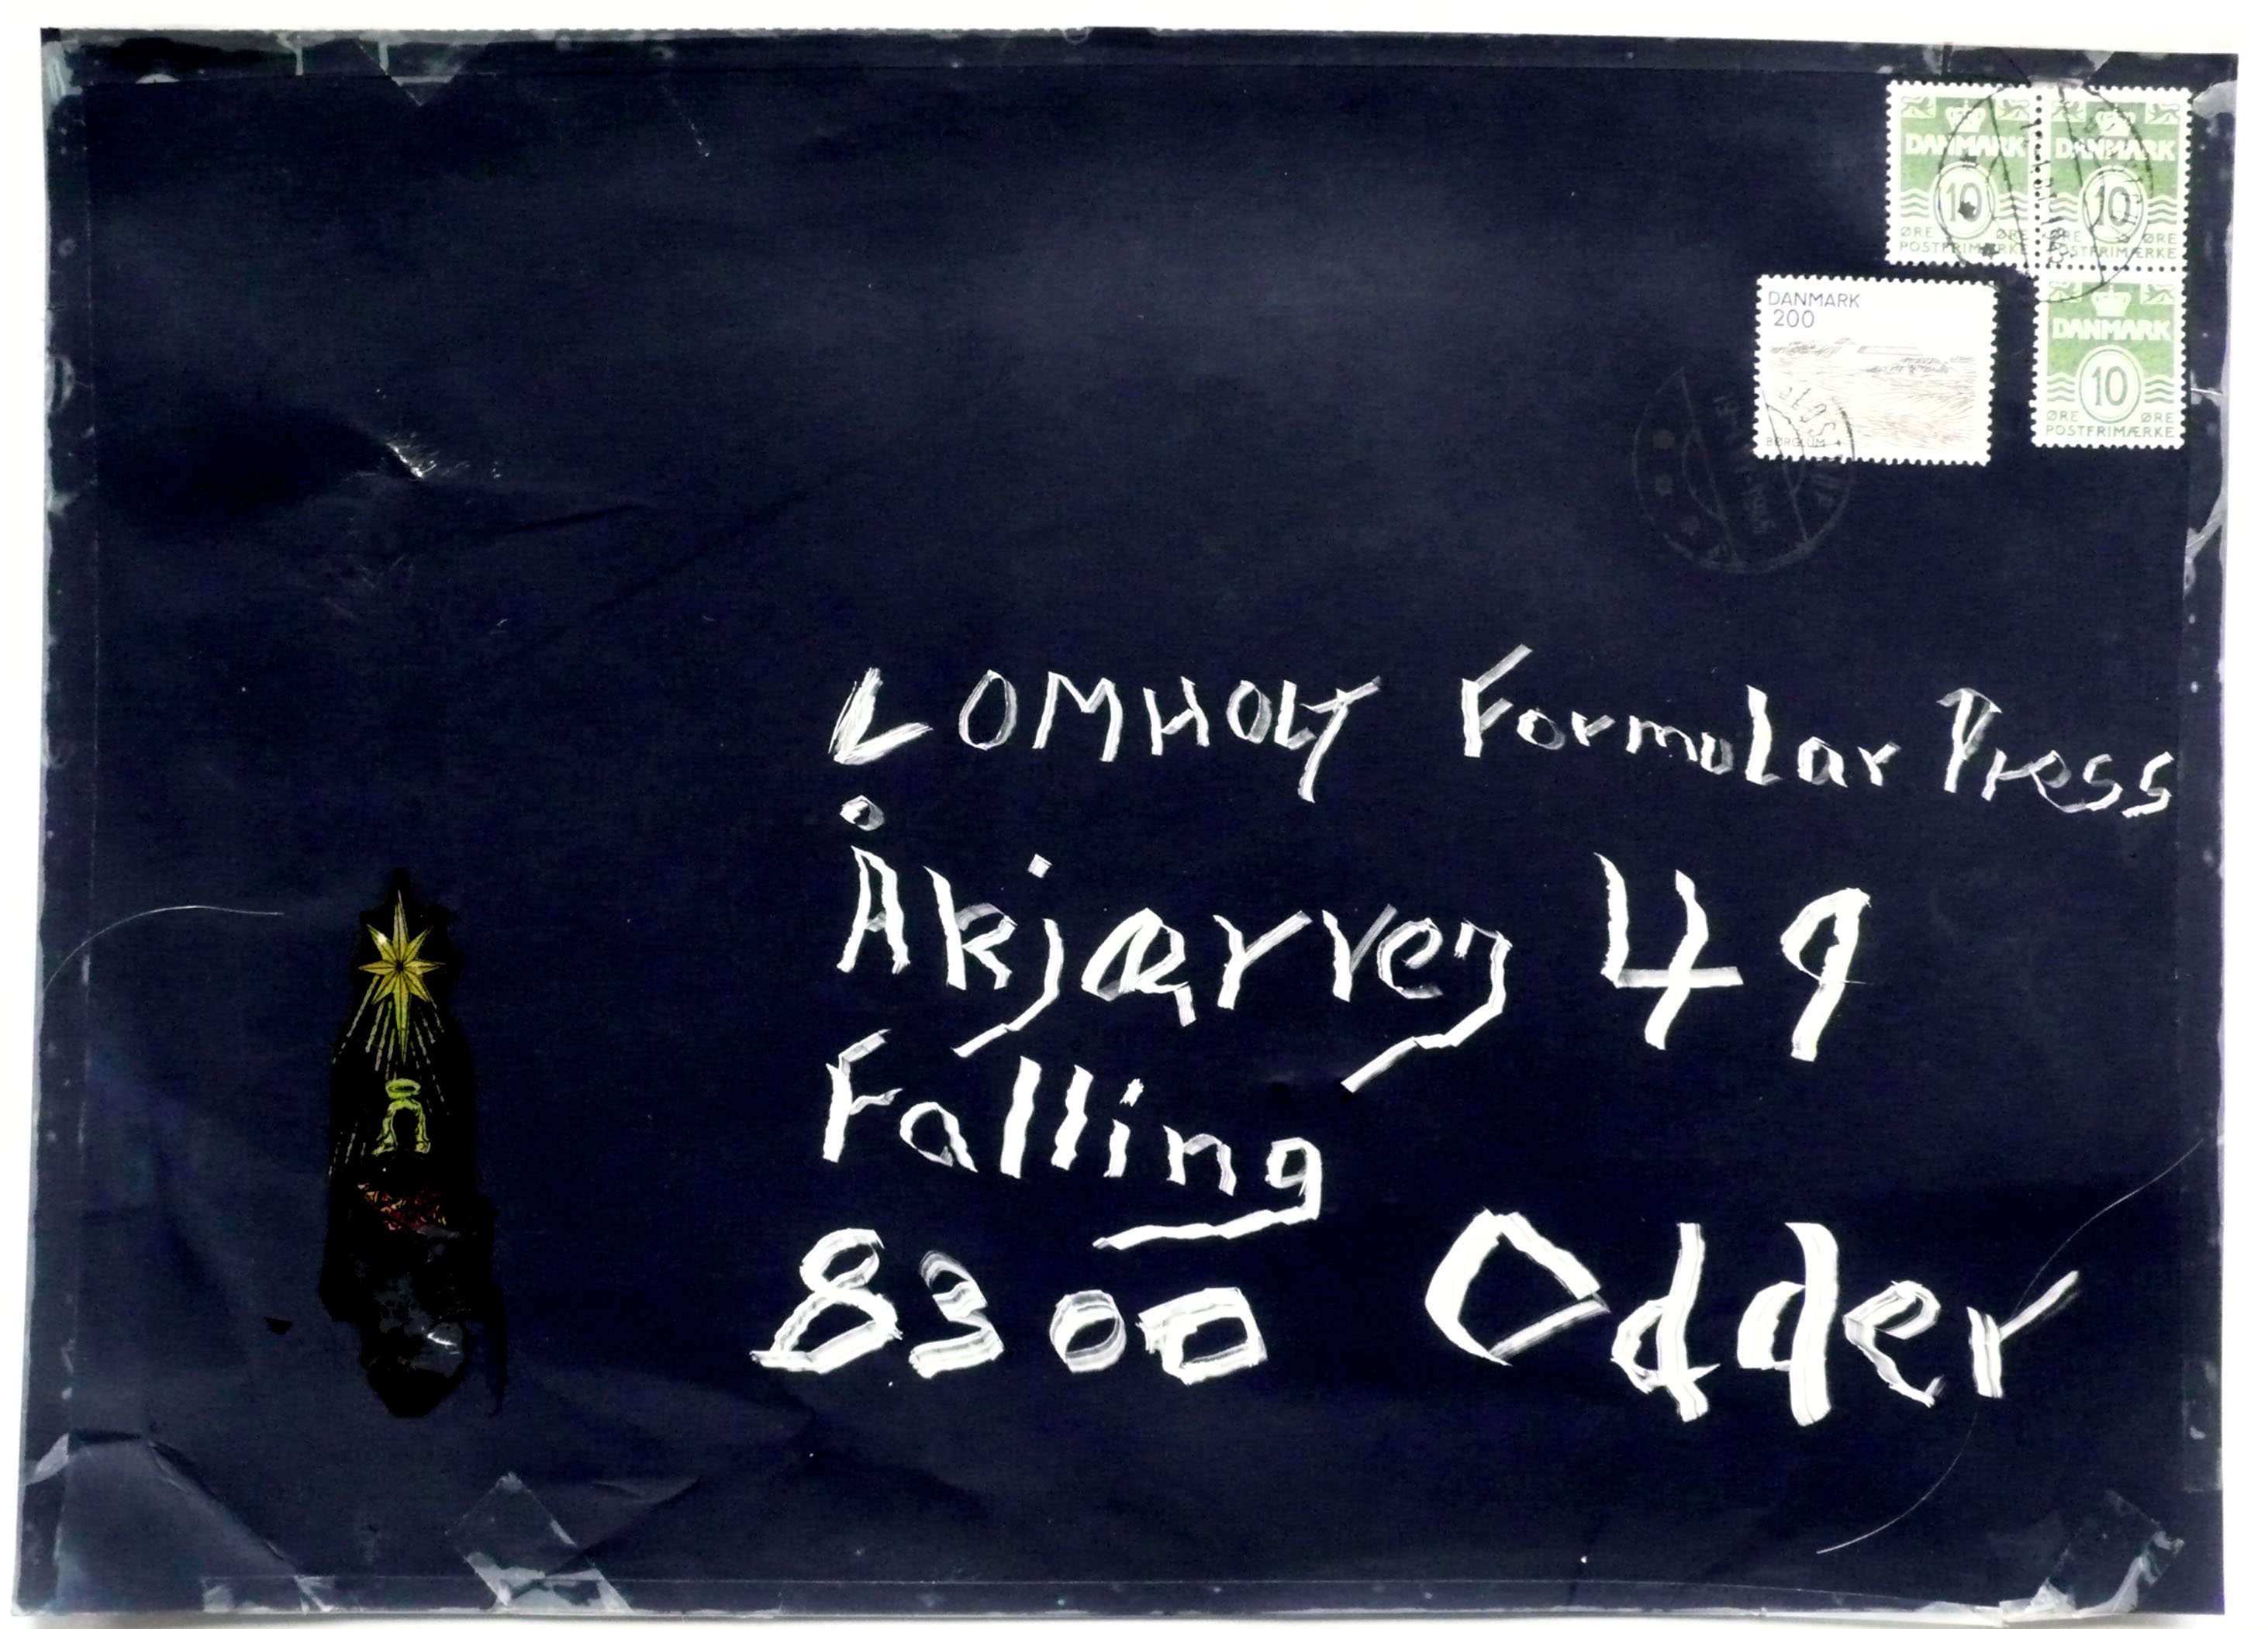 DANMARK DANMARK
10 10
ØRE ØRE ØRE ØRE
POSTFRIMÆRKE POSTFRIMÆRKE
DANMARK
200
BØRGLUM
DANMARK
10
ØRE ØRE
POSTFRIMÆRKE
LOMHOLT Formular Press
Åkjærvej 49
Falling
8300 Odder